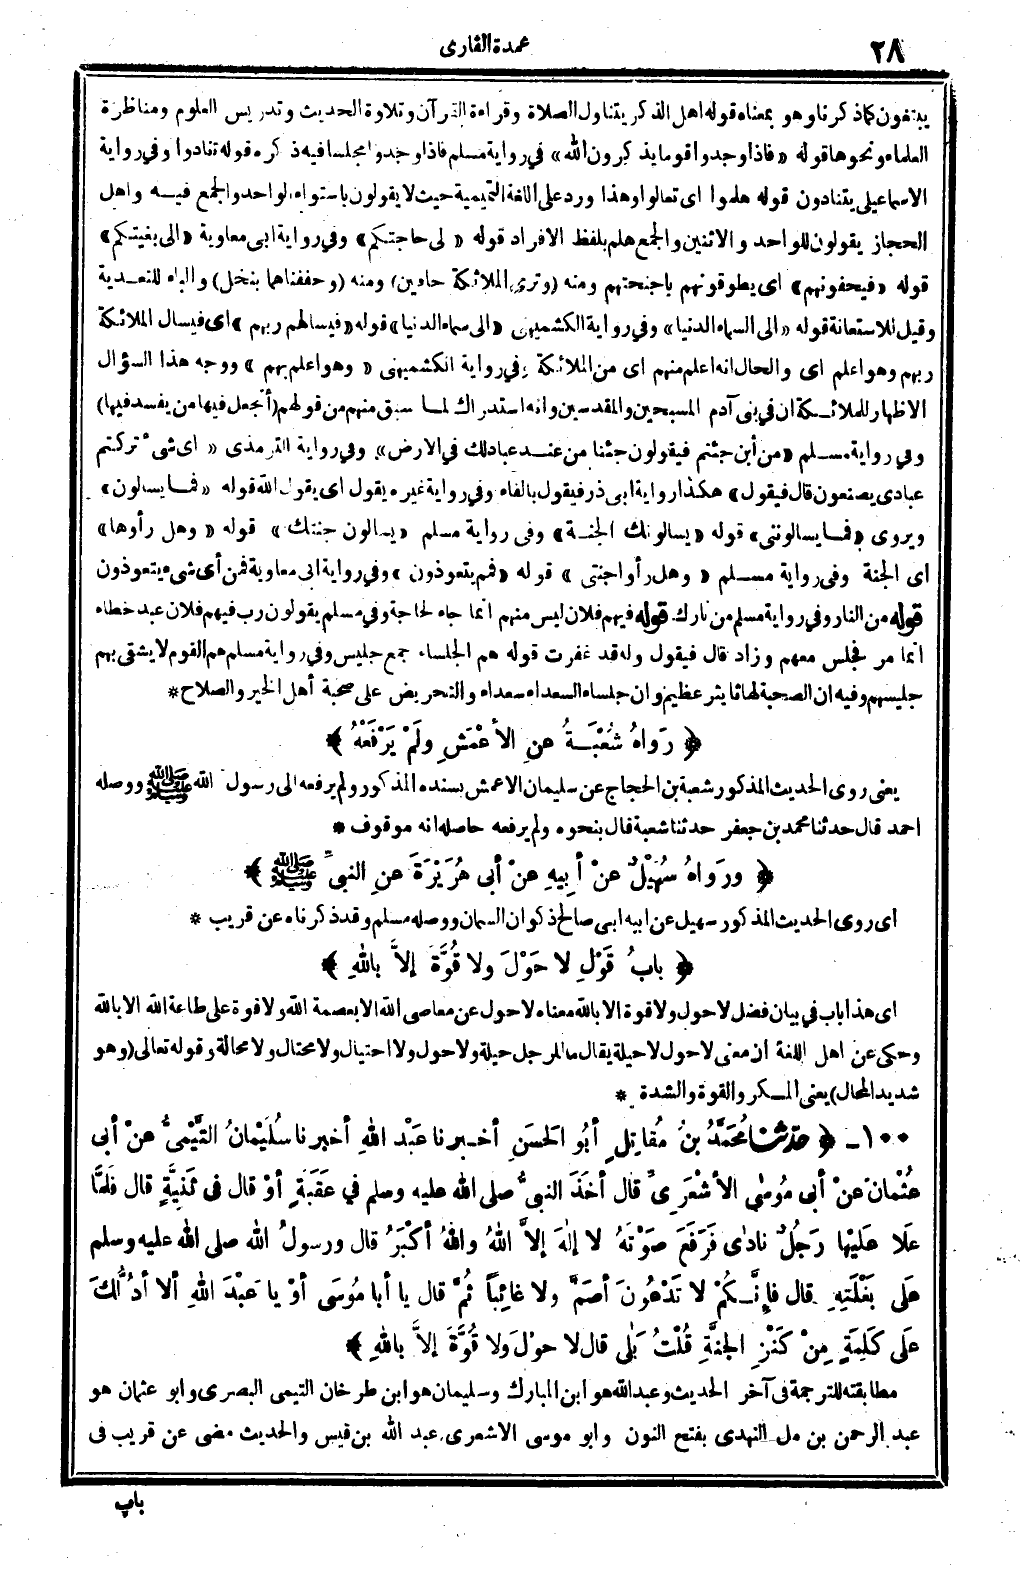 ٢٨
عمدة القارى
يبتغون كما ذكرنا وهو بمعناه قوله اهل الذكر يتناول الصلاة وقراءة القرآن وتلاوة الحديث وتدريس العلوم ومناظرة
العلماء ونحوها قوله «فاذا وجدوا قوما يذكرون الله» في رواية مسلم فاذا وجدوا مجلسا فيه ذكره قوله تنادوا وفي رواية
الاسماعيلي يتنادون قوله هلموا اى تعالوا وهذا ورد على اللغة التميمية حيث لا يقولون باستواء الواحد والجمع فيه واهل
الحجاز يقولون للواحد والاثنين والجمع هلم بلفظ الافراد قوله «الى حاجتكم» وفي رواية ابى معاوية «الى بغيتكم»
قوله «فيحفونهم» اى يطوقونهم باجنحتهم ومنه (وترى الملائكة حافين) ومنه (وحففناهما بنخل) والباء للتعدية
وقيل للاستعانة قوله «الى السماء الدنيا» وفي رواية الكشميهنى «الى سماء الدنيا» قوله «فيسالهم ربهم» اى فيسال الملائكة
ربهم وهو اعلم اى والحال انه اعلم منهم اى من الملائكة وفي رواية الكشميهنى «وهو اعلم بهم» ووجه هذا السؤال
الاظهار للملائكة ان في بنى آدم المسبحين والمقدسين وانه استدراك لما سبق منهم من قولهم (أتجعل فيها من يفسد فيها)
وفي رواية مسلم «من أين جئتم فيقولون جئنا من عند عباد لك في الارض» وفي رواية الترمذى «اى شئ تركتم
عبادى يصنعون قال فيقول» هكذا رواية ابى ذر فيقول بالفاء وفي رواية غيره يقول اى يقول الله قوله «فما يسالون»
ويروى «فما يسالونى» قوله «يسالونك الجنة» وفى رواية مسلم «يسالون جنتك» قوله «وهل رأوها»
أى الجنة وفى رواية مسلم «وهل رأوا جنتى» قوله «فم يتعوذون» وفي رواية ابى معاوية فمن أى شىء يتعوذون
قوله من النار وفي رواية مسلم من نارك قوله فيهم فلان ليس منهم انما جاء لحاجة وفي مسلم يقولون رب فيهم فلان عبد خطاء
انما مر فجلس معهم وزاد قال فيقول وله قد غفرت قوله هم الجلساء جمع جليس وفي رواية مسلم هم القوم لا يشقى بهم
جليسهم وفيه ان الصحبة لها تأثير عظيم وان جلساء السعداء سعداء والتحريض على صحبة أهل الخير والصلاح *
﴿ رَوَاهُ شُعْبَةُ عنِ الأعْمَشِ ولَمْ يَرْفَعْهُ ﴾
يعنى روى الحديث المذكور شعبة بن الحجاج عن سليمان الاعمش بسنده المذكور ولم يرفعه الى رسول الله ﷺ ووصله
احمد قال حدثنا محمد بن جعفر حدثنا شعبة قال بنحوه ولم يرفعه حاصله انه موقوف *
﴿ ورَوَاهُ سُهَيْلٌ عنْ أبِيهِ عنْ أبى هُرَيْرَةَ عنِ النبىِّ ﷺ ﴾
اى روى الحديث المذكور سهيل عن ابيه ابى صالح ذكوان السمان ووصله مسلم وقد ذكرناه عن قريب *
﴿ بابُ قَوْلِ لا حَوْلَ ولا قُوَّةَ إلاَّ باللهِ ﴾
اى هذا باب في بيان فضل لا حول ولا قوة الا بالله معناه لا حول عن معاصى الله الا بعصمة الله ولا قوة على طاعة الله الا بالله
وحكى عن اهل اللغة أن معنى لا حول لا حيلة يقال ما للرجل حيلة ولا حول ولا احتيال ولا محتال ولا محالة وقوله تعالى (وهو
شديد المحال) يعنى المكر والقوة والشدة *
١٠٠ ـ ﴿ حدثنا مُحَمَّدُ بنُ مُقاتِلٍ أبُو الحَسَنِ أخبرنا عَبْدُ اللهِ أخبرنا سُلَيْمانُ التَّيْمِىُّ عنْ أبى
عُثْمانَ عنْ أبى مُوسٰى الأشْعَرِىِّ قال أخَذَ النبىُّ صلى الله عليه وسلم فى عَقَبَةٍ أوْ قال فى ثَنِيَّةٍ قال فَلَمَّا
علا عَلَيْها رَجُلٌ نادٰى فَرَفَعَ صَوْتَهُ لا إلٰهَ إلاَّ اللهُ واللهُ أكْبَرُ قال ورسولُ الله صلى الله عليه وسلم
عَلى بَغْلَتِهِ قال فإنَّكُمْ لا تَدْعُونَ أصَمَّ ولا غائِباً ثُمَّ قال يا أبا مُوسَى أوْ يا عَبْدَ اللهِ ألا أدُلُّكَ
عَلَى كَلِمَةٍ مِنْ كَنْزِ الجَنَّةِ قُلْتُ بَلٰى قال لا حَوْلَ ولا قُوَّةَ إلاَّ باللهِ ﴾
مطابقته للترجمة فى آخر الحديث وعبد الله هو ابن المبارك وسليمان هو ابن طرخان التيمى البصرى وابو عثمان هو
عبد الرحمن بن مل النهدى بفتح النون وابو موسى الاشعرى عبد الله بن قيس والحديث مضى عن قريب فى
باب